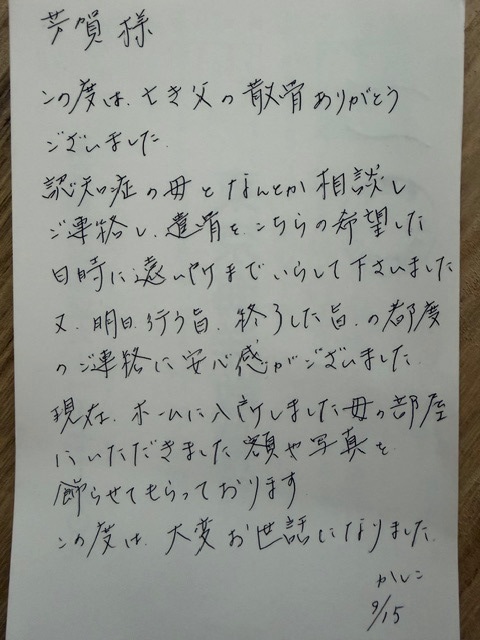 芳賀様
この度は、亡き父の散骨ありがとう
ございました.
認知症の母となんとか相談し
ご連絡し、遺骨を、こちらの希望した
日時に遠い所までいらして下さいました
又、明日、行う旨、終了した旨、の都度
のご連絡に安心感がございました.
現在、ホームに入所しました母の部屋
にいただきました額や写真を
飾らせてもらっております
この度は、大変お世話になりました.
かしこ
9/15